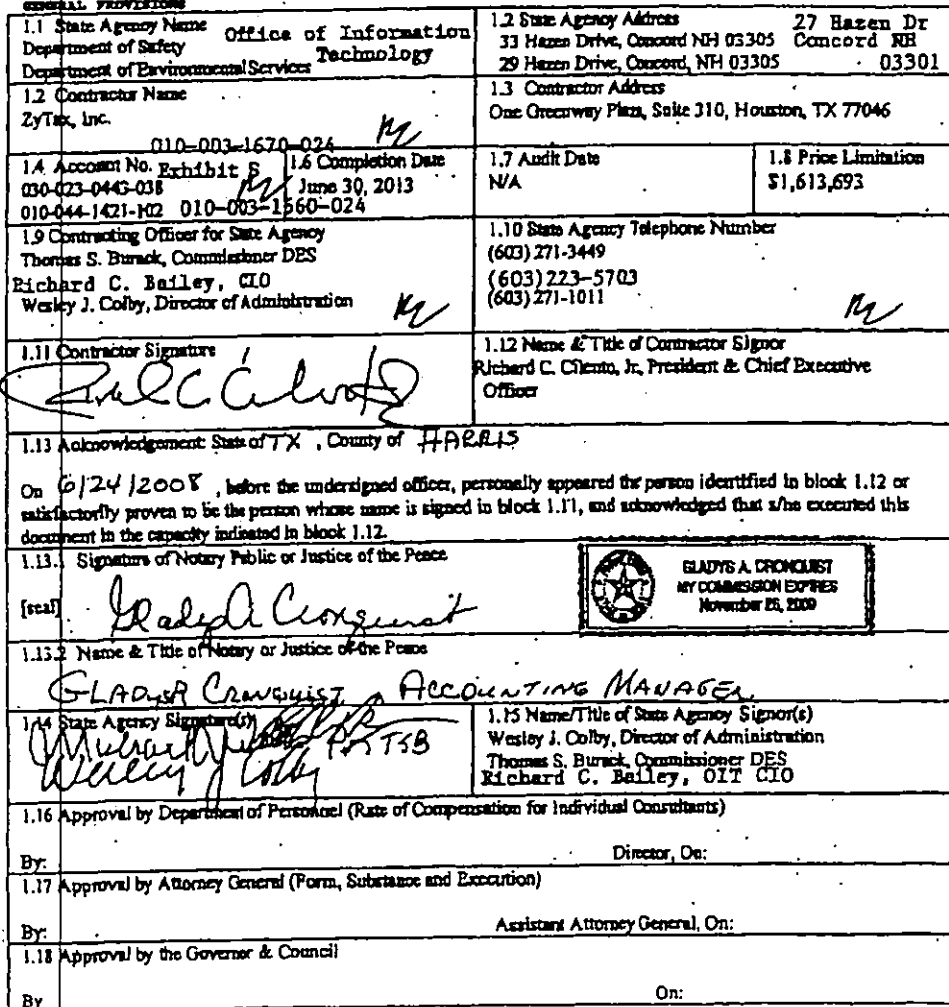 GENERAL PROVISIONS
1.1 State Agency Name Office of Information
Department of Safety Technology
Department of Environmental Services
1.2 State Agency Address 27 Hazen Dr
33 Hazen Drive, Concord NH 03305 Concord NH
29 Hazen Drive, Concord, NH 03305 03301
1.2 Contractor Name
ZyTax, Inc.
010-003-1670-024
1.3 Contractor Address
One Greenway Plaza, Suite 310, Houston, TX 77046
1.4 Account No. Exhibit S
030-023-0443-038
010-044-1421-102 010-003-1660-024
1.6 Completion Date
June 30, 2013
1.7 Audit Date
N/A
1.8 Price Limitation
$1,613,693
1.9 Contracting Officer for State Agency
Thomas S. Burack, Commissioner DES
Richard C. Bailey, CIO
Wesley J. Colby, Director of Administration
1.10 State Agency Telephone Number
(603) 271-3449
(603) 223-5703
(603) 271-1011
1.11 Contractor Signature
1.12 Name & Title of Contractor Signor
Richard C. Cilento, Jr., President & Chief Executive
Officer
1.13 Acknowledgement: State of TX , County of HARRIS
On 6/24/2008 , before the undersigned officer, personally appeared the person identified in block 1.12 or
satisfactorily proven to be the person whose name is signed in block 1.11, and acknowledged that s/he executed this
document in the capacity indicated in block 1.12.
1.13.1 Signature of Notary Public or Justice of the Peace
[seal] Gladys A Cronquist
GLADYS A. CRONQUIST
MY COMMISSION EXPIRES
November 25, 2009
1.13.2 Name & Title of Notary or Justice of the Peace
GLADYS CRONQUIST, ACCOUNTING MANAGER
1.14 State Agency Signature(s)
Wesley J Colby
1.15 Name/Title of State Agency Signor(s)
Wesley J. Colby, Director of Administration
Thomas S. Burack, Commissioner DES
Richard C. Bailey, OIT CIO
1.16 Approval by Department of Personnel (Rate of Compensation for Individual Consultants)
By: Director, On:
1.17 Approval by Attorney General (Form, Substance and Execution)
By: Assistant Attorney General, On:
1.18 Approval by the Governor & Council
By On: